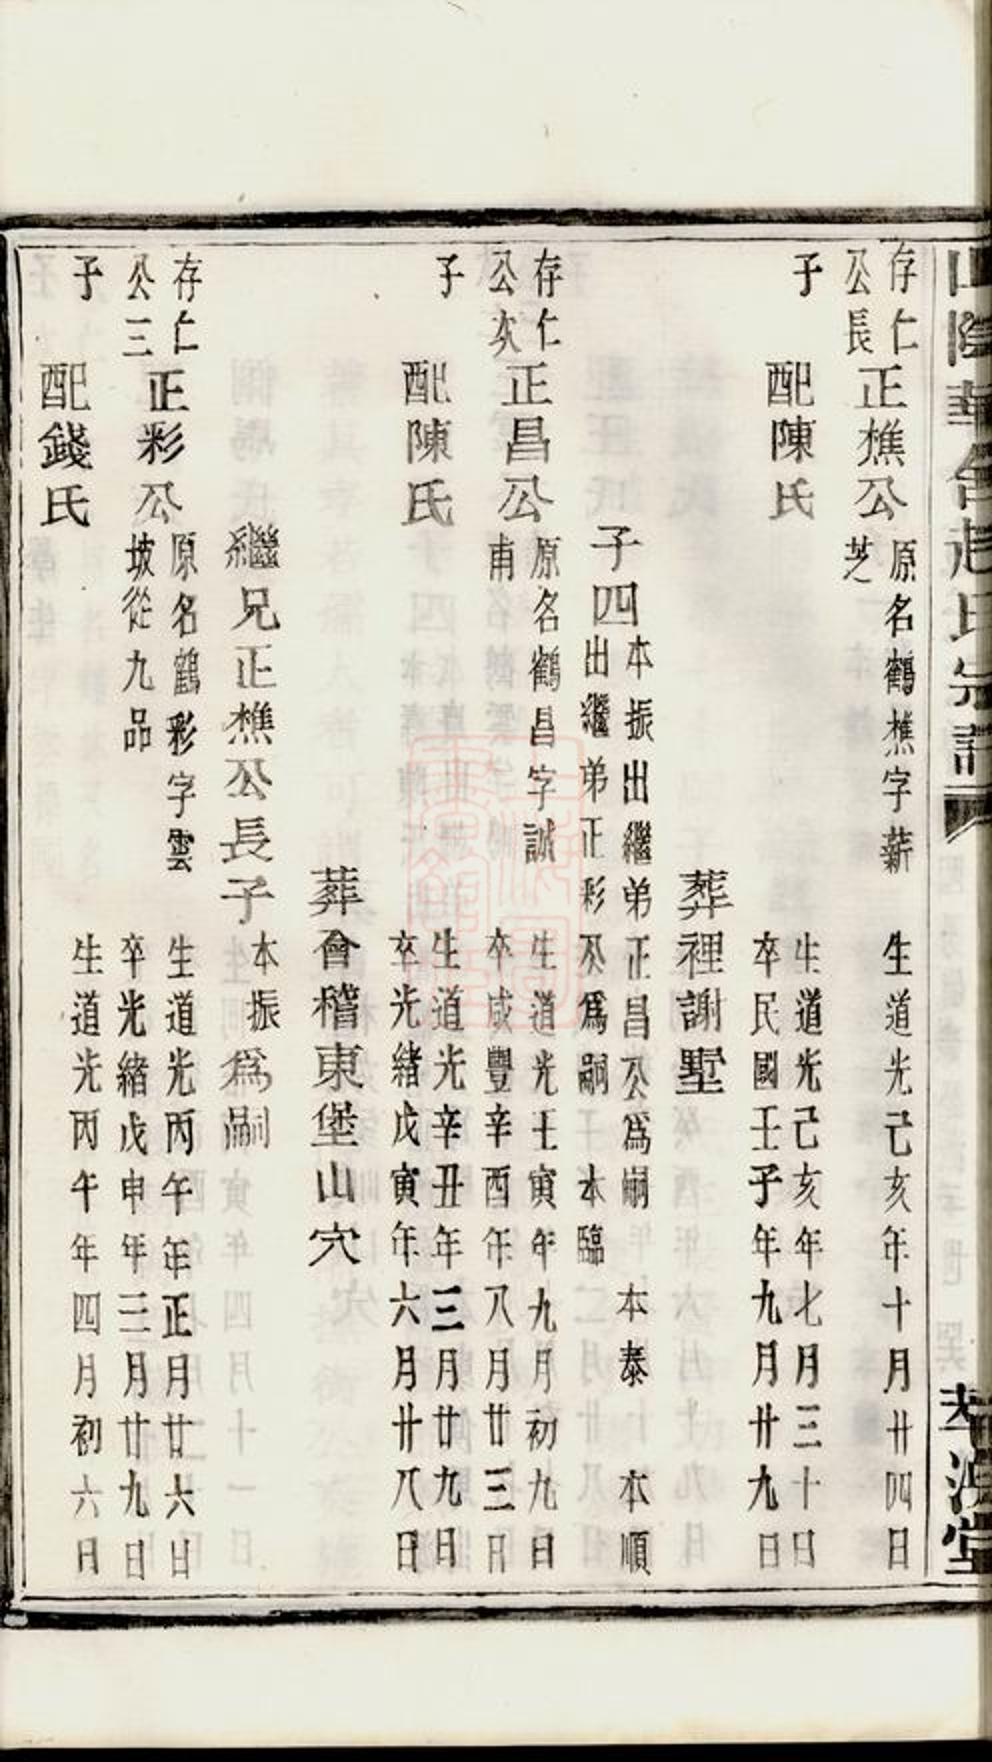 山陰華舍趙氏宗譜
存仁公長子
正樵公 原名鶴樵字薪芝
生道光己亥年十月廿四日
配陳氏
生道光己亥年七月三十日
卒民國壬子年九月廿九日
葬裡謝墅
子四
本振出繼弟正昌公為嗣 本泰 本順
出繼弟正彩公為嗣 本臨
存仁公次子
正昌公 原名鶴昌字誠甫
生道光壬寅年九月初九日
卒咸豐辛酉年八月廿三日
配陳氏
生道光辛丑年三月廿九日
卒光緒戊寅年六月廿八日
葬會稽東堡山穴
繼兄正樵公長子本振為嗣
存仁公三子
正彩公 原名鶴彩字雲坡從九品
生道光丙午年正月廿六日
卒光緒戊申年三月廿九日
配錢氏
生道光丙午年四月初六日